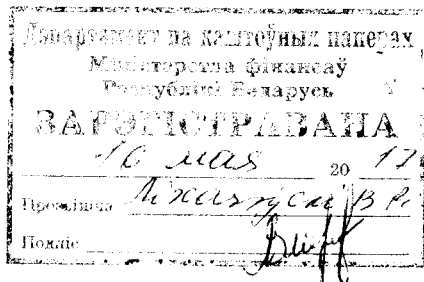 Дэпартамент па каштоўных паперах
Міністэрства фінансаў
Рэспублікі Беларусь
ЗАРЭГІСТРАВАНА
10 мая 20 17
Прозвішча
Подпіс